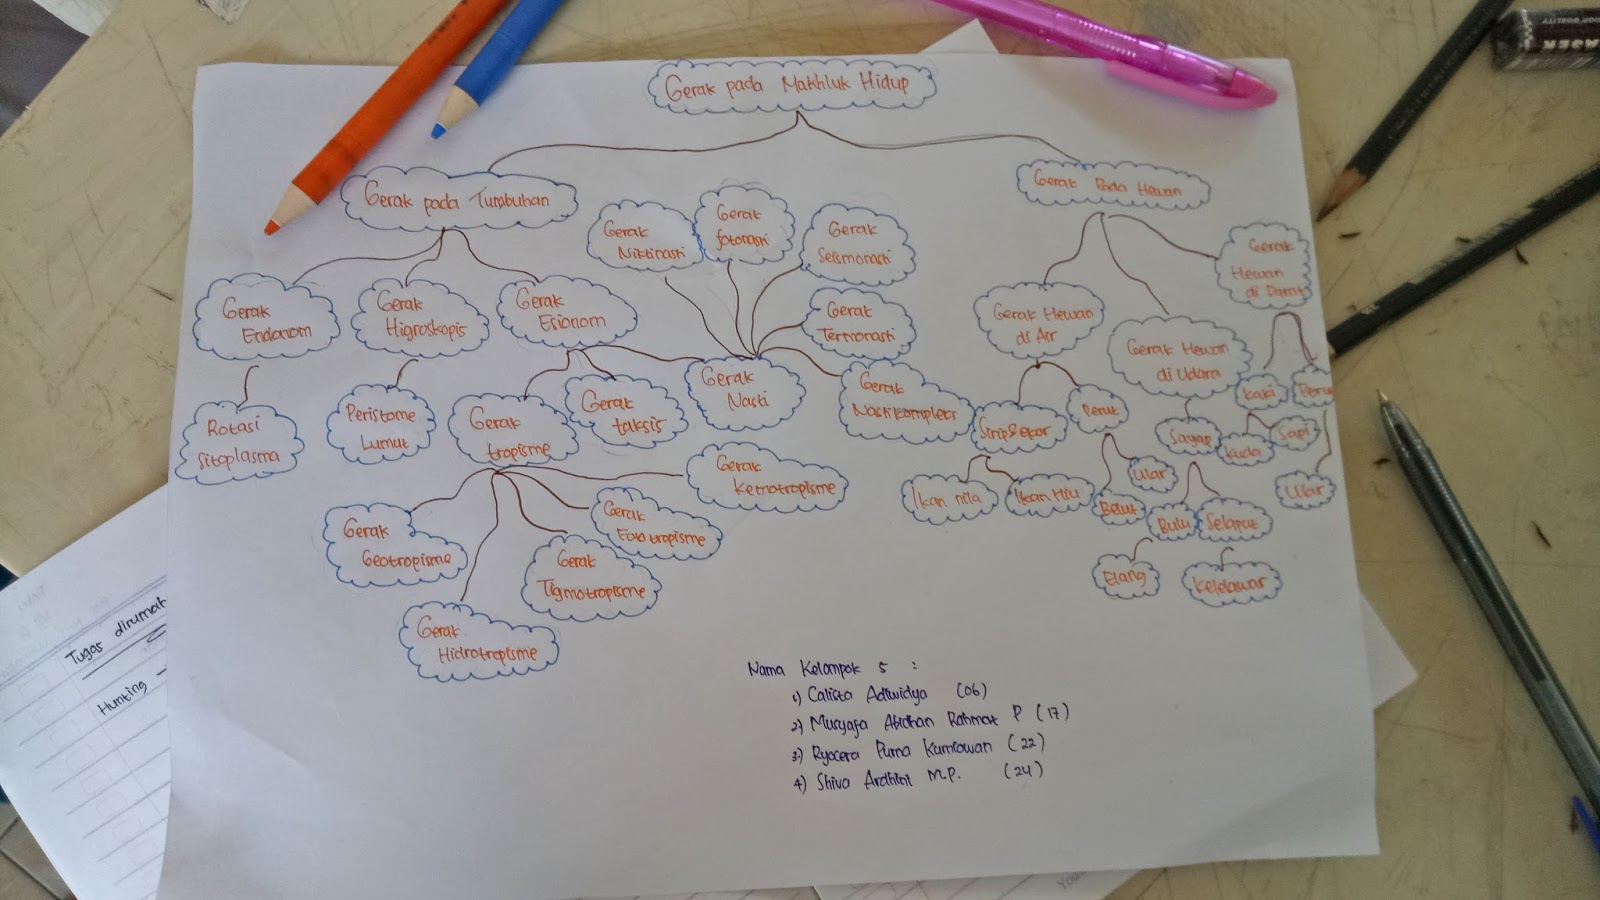 Gerak pada Makhluk Hidup
Gerak pada Tumbuhan
Gerak Pada Hewan
Gerak
Niktinasti
Gerak
fotonasti
Gerak
Seismonasti
Gerak
Hewan
di Darat
Gerak
Endonom
Gerak
Higroskopis
Gerak
Esionom
Gerak
Termonasti
Gerak Hewan
di Air
Gerak Hewan
di Udara
Rotasi
Sitoplasma
Peristome
Lumut
Gerak
tropisme
Gerak
taksis
Gerak
Nasti
Gerak
Nasti kompleks
Sirip & ekor
Perut
Sayap
kaki
Kuda
Sapi
Ular
Gerak
Kemotropisme
Ikan nila
Ikan Hiu
Belut
Ular
Bulu
Selaput
Elang
Kelelawar
Gerak
Geotropisme
Gerak
Hidrotropisme
Gerak
Tigmotropisme
Gerak
Fototropisme
Nama Kelompok 5 :
1) Calista Adiwidya (06)
2) Musyafa Abidhan Rahmat P (17)
3) Ryocera Purna Kurniawan (22)
4) Shiva Ardhini M.P. (24)
Tugas dirumah
Hunting